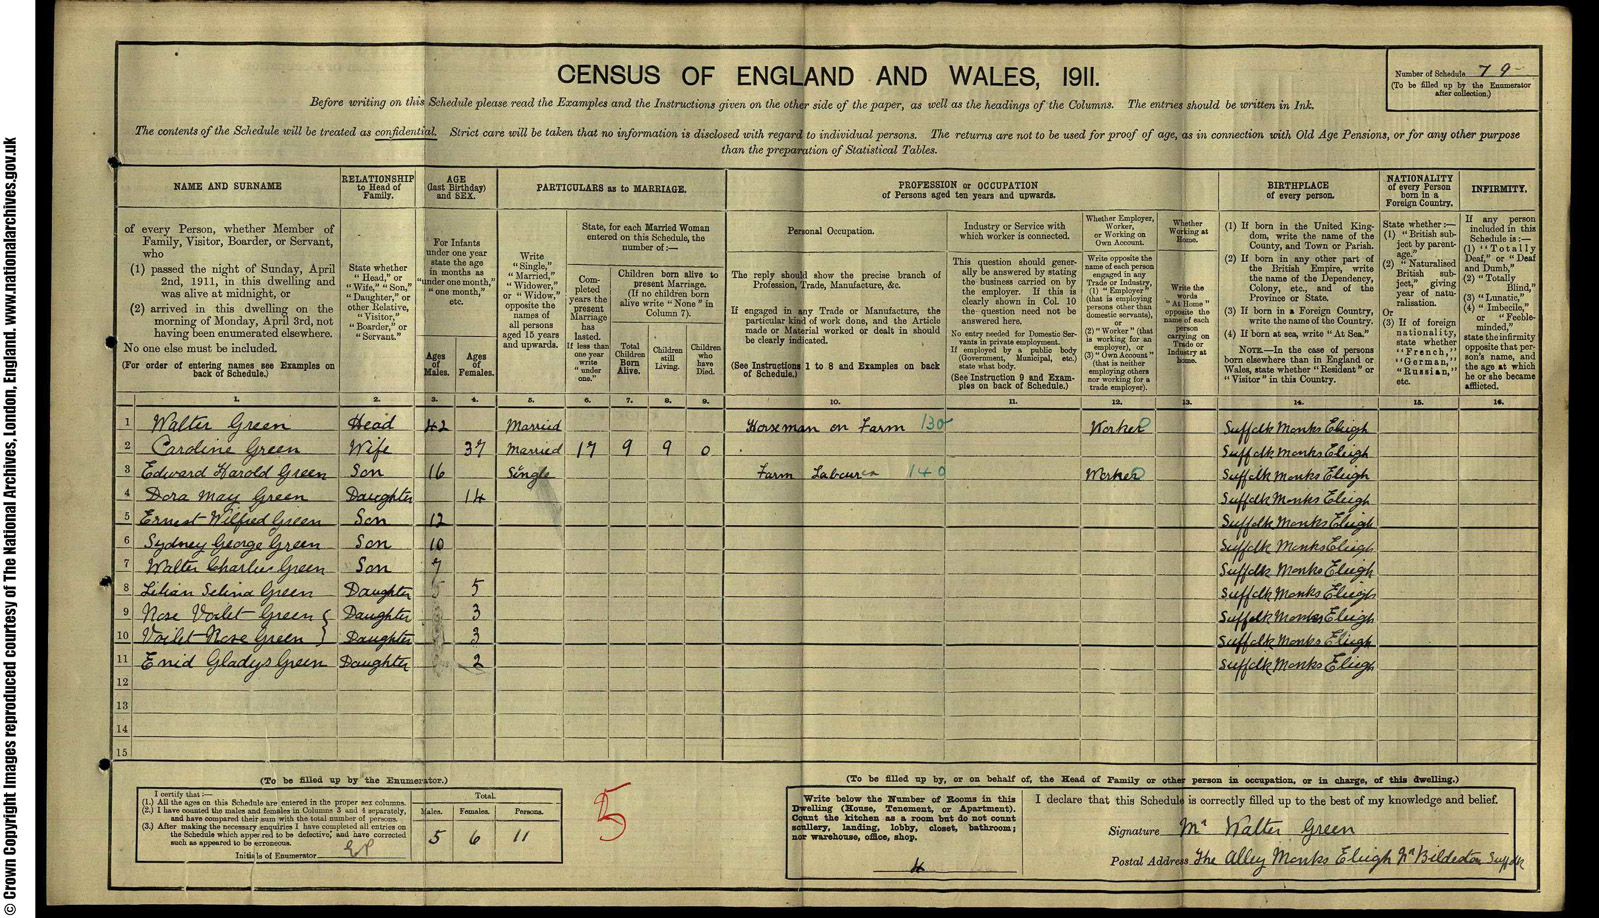 CENSUS OF ENGLAND AND WALES, 1911.
Number of Schedule 79
(To be filled up by the Enumerator after collection.)
Before writing on this Schedule please read the Examples and the Instructions given on the other side of the paper, as well as the headings of the Columns. The entries should be written in Ink.
The contents of the Schedule will be treated as confidential. Strict care will be taken that no information is disclosed with regard to individual persons. The returns are not to be used for proof of age, as in connection with Old Age Pensions, or for any other purpose
than the preparation of Statistical Tables.
NAME AND SURNAME
of every Person, whether Member of
Family, Visitor, Boarder, or Servant,
who
(1) passed the night of Sunday, April
2nd, 1911, in this dwelling and
was alive at midnight, or
(2) arrived in this dwelling on the
morning of Monday, April 3rd, not
having been enumerated elsewhere.
No one else must be included.
(For order of entering names see Examples on
back of Schedule.)
RELATIONSHIP
to Head of
Family.
State whether
"Head," or
"Wife," "Son,"
"Daughter," or
other Relative,
"Visitor,"
"Boarder," or
"Servant."
AGE
(last Birthday)
and SEX.
For Infants
under one year
state the age
in months as
"under one month,"
"one month,"
etc.
Ages of Males.
Ages of Females.
PARTICULARS as to MARRIAGE.
Write
"Single,"
"Married,"
"Widower,"
or "Widow,"
opposite the
names of
all persons
aged 15 years
and upwards.
State, for each Married Woman
entered on this Schedule, the
number of:—
Completed years the present Marriage has lasted.
If less than one year write "under one."
Children born alive to
present Marriage.
(If no children born
alive write "None" in
Column 7).
Total Children Born Alive.
Children still Living.
Children who have Died.
PROFESSION or OCCUPATION
of Persons aged ten years and upwards.
Personal Occupation.
The reply should show the precise branch of
Profession, Trade, Manufacture, &c.
If engaged in any Trade or Manufacture, the
particular kind of work done, and the Article
made or Material worked or dealt in should
be clearly indicated.
(See Instructions 1 to 8 and Examples on back
of Schedule.)
Industry or Service with
which worker is connected.
This question should generally
be answered by stating
the business carried on by
the employer. If this is
clearly shown in Col. 10
the question need not be
answered here.
No entry needed for Domestic Servants
in private employment.
If employed by a public body
(Government, Municipal, etc.)
state what body.
(See Instruction 9 and Examples
on back of Schedule.)
Whether Employer,
Worker,
or Working on
Own Account.
Write opposite the
name of each person
engaged in any
Trade or Industry,
(1) "Employer"
(that is employing
persons other than
domestic servants),
or
(2) "Worker" (that
is working for an
employer), or
(3) "Own Account"
(that is neither
employing others
nor working for a
trade employer).
Whether
Working at
Home.
Write the
words
"At Home"
opposite the
name of each
person
carrying on
Trade or
Industry at
home.
BIRTHPLACE
of every person.
(1) If born in the United Kingdom,
write the name of the
County, and Town or Parish.
(2) If born in any other part of
the British Empire, write
the name of the Dependency,
Colony, etc., and of the
Province or State.
(3) If born in a Foreign Country,
write the name of the Country.
(4) If born at sea, write "At Sea."
NOTE.—In the case of persons
born elsewhere than in England or
Wales, state whether "Resident" or
"Visitor" in this Country.
NATIONALITY
of every Person
born in a
Foreign Country.
State whether:—
(1) "British subject
by parentage."
(2) "Naturalised
British subject,"
giving
year of naturalisation.
Or
(3) If of foreign
nationality,
state whether
"French,"
"German,"
"Russian,"
etc.
INFIRMITY.
If any person
included in this
Schedule is:—
(1) "Totally
Deaf," or "Deaf
and Dumb,"
(2) "Totally
Blind,"
(3) "Lunatic,"
(4) "Imbecile,"
or "Feebleminded,"
state the infirmity
opposite that person's
name, and
the age at which
he or she became
afflicted.
1. 2. 3. 4. 5. 6. 7. 8. 9. 10. 11. 12. 13. 14. 15. 16.
1 Walter Green Head 42 Married Horseman on Farm 130 Worker Suffolk Monks Eleigh
2 Caroline Green Wife 37 Married 17 9 9 0 Suffolk Monks Eleigh
3 Edward Harold Green Son 16 Single Farm Labourer 140 Worker Suffolk Monks Eleigh
4 Dora May Green Daughter 14 Suffolk Monks Eleigh
5 Ernest Wilfred Green Son 12 Suffolk Monks Eleigh
6 Sydney George Green Son 10 Suffolk Monks Eleigh
7 Walter Charlie Green Son 7 Suffolk Monks Eleigh
8 Lilian Selina Green Daughter 5 5 Suffolk Monks Eleigh
9 Rose Voilet Green Daughter 3 Suffolk Monks Eleigh
10 Voilet Rose Green Daughter 3 Suffolk Monks Eleigh
11 Enid Gladys Green Daughter 2 Suffolk Monks Eleigh
12
13
14
15
(To be filled up by the Enumerator.)
I certify that:—
(1.) All the ages on this Schedule are entered in the proper sex columns.
(2.) I have counted the males and females in Columns 3 and 4 separately,
and have compared their sum with the total number of persons.
(3.) After making the necessary enquiries I have completed all entries on
the Schedule which appeared to be defective, and have corrected
such as appeared to be erroneous.
Initials of Enumerator
Total.
Males. Females. Persons.
5 6 11
5
(To be filled up by, or on behalf of, the Head of Family or other person in occupation, or in charge, of this dwelling.)
Write below the Number of Rooms in this
Dwelling (House, Tenement, or Apartment).
Count the kitchen as a room but do not count
scullery, landing, lobby, closet, bathroom;
nor warehouse, office, shop.
4
I declare that this Schedule is correctly filled up to the best of my knowledge and belief.
Signature Mr Walter Green
Postal Address The Alley Monks Eleigh Nr Bildeston Suffolk
© Crown Copyright Images reproduced courtesy of The National Archives, London, England. www.nationalarchives.gov.uk